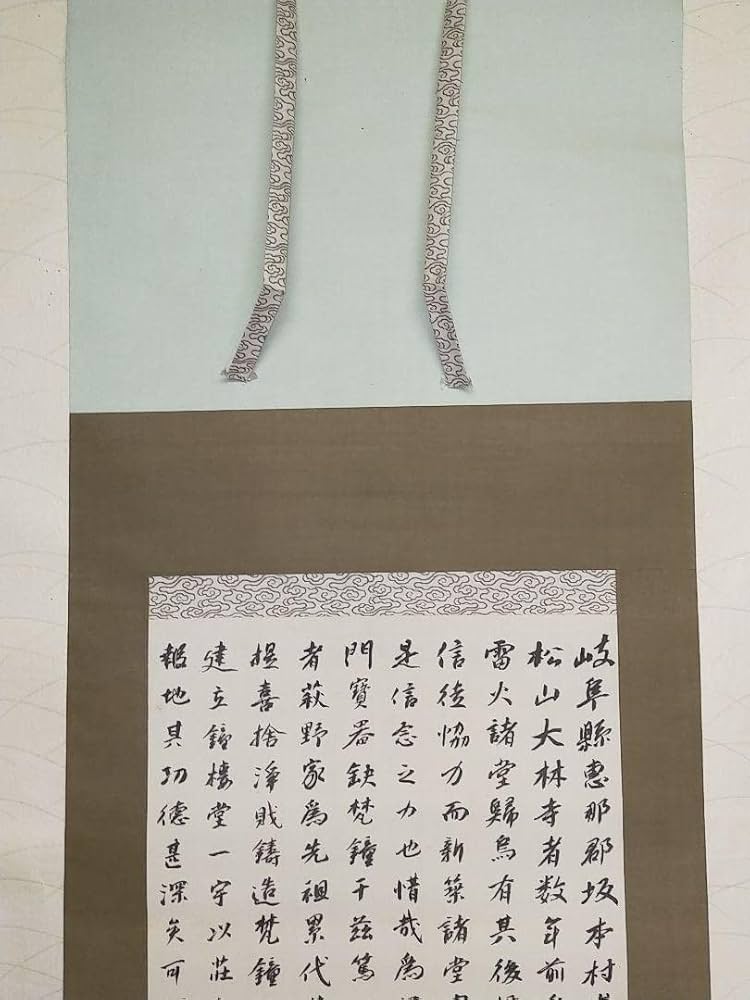 岐阜縣惠那郡坂本村
松山大林寺者数年前
雷火諸堂歸烏有其後
信徒恊力而新築諸堂
是信念之力也惜哉為
門寶器欠梵鐘于茲篤
者萩野家為先祖累代
提喜捨淨賎鋳造梵鐘
建立鐘樓堂一宇以莊
報地其功德甚深矣可